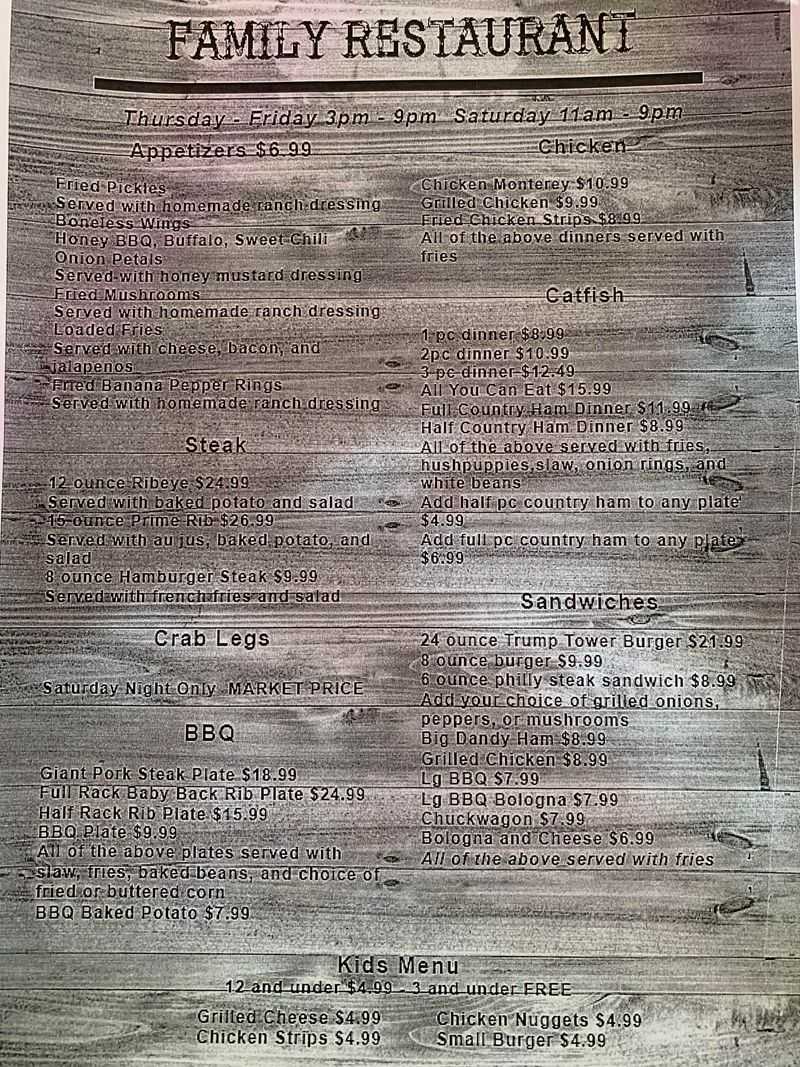 FAMILY RESTAURANT
Thursday - Friday 3pm - 9pm Saturday 11am - 9pm
Appetizers $6.99
Fried Pickles
Served with homemade ranch dressing
Boneless Wings
Honey BBQ, Buffalo, Sweet Chili
Onion Petals
Served with honey mustard dressing
Fried Mushrooms
Served with homemade ranch dressing
Loaded Fries
Served with cheese, bacon, and
jalapenos
Fried Banana Pepper Rings
Served with homemade ranch dressing
Steak
12 ounce Ribeye $24.99
Served with baked potato and salad
15 ounce Prime Rib $26.99
Served with au jus, baked potato, and
salad
8 ounce Hamburger Steak $9.99
Served with french fries and salad
Crab Legs
Saturday Night Only MARKET PRICE
BBQ
Giant Pork Steak Plate $18.99
Full Rack Baby Back Rib Plate $24.99
Half Rack Rib Plate $15.99
BBQ Plate $9.99
All of the above plates served with
slaw, fries, baked beans, and choice of
fried or buttered corn
BBQ Baked Potato $7.99
Chicken
Chicken Monterey $10.99
Grilled Chicken $9.99
Fried Chicken Strips $8.99
All of the above dinners served with
fries
Catfish
1 pc dinner $8.99
2pc dinner $10.99
3 pc dinner $12.49
All You Can Eat $15.99
Full Country Ham Dinner $11.99
Half Country Ham Dinner $8.99
All of the above served with fries,
hushpuppies,slaw, onion rings, and
white beans
Add half pc country ham to any plate
$4.99
Add full pc country ham to any plate
$6.99
Sandwiches
24 ounce Trump Tower Burger $21.99
8 ounce burger $9.99
6 ounce philly steak sandwich $8.99
Add your choice of grilled onions,
peppers, or mushrooms
Big Dandy Ham $8.99
Grilled Chicken $8.99
Lg BBQ $7.99
Lg BBQ Bologna $7.99
Chuckwagon $7.99
Bologna and Cheese $6.99
All of the above served with fries
Kids Menu
12 and under $4.99 - 3 and under FREE
Grilled Cheese $4.99
Chicken Strips $4.99
Chicken Nuggets $4.99
Small Burger $4.99